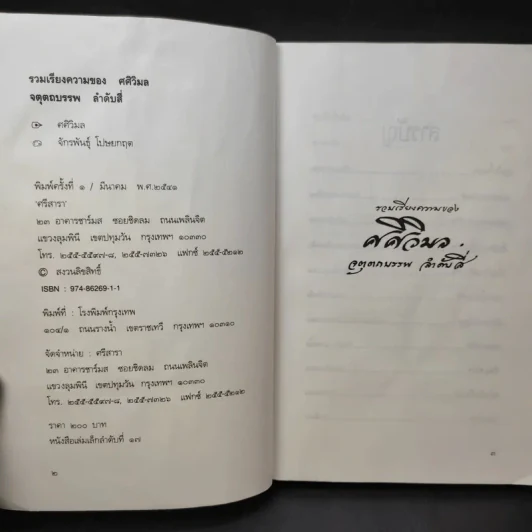 รวมเรียงความของ ศศิวิมล
จตุตถบรรพ ลำดับสี่
ศศิวิมล
จักรพันธุ์ โปษยกฤต
พิมพ์ครั้งที่ ๑ / มีนาคม พ.ศ.๒๕๔๑
'ศรีสารา'
๒๓ อาคารชาร์มส ซอยชิดลม ถนนเพลินจิต
แขวงลุมพินี เขตปทุมวัน กรุงเทพฯ ๑๐๓๓๐
โทร. ๒๕๕-๕๕๙๗-๘, ๒๕๕-๗๓๒๖ แฟกซ์ ๒๕๕-๕๒๑๒
© สงวนลิขสิทธิ์
ISBN : 974-86269-1-1
พิมพ์ที่ : โรงพิมพ์กรุงเทพ
๑๐๔/๑ ถนนรางน้ำ เขตราชเทวี กรุงเทพฯ ๑๐๓๑๐
จัดจำหน่าย : ศรีสารา
๒๓ อาคารชาร์มส ซอยชิดลม ถนนเพลินจิต
แขวงลุมพินี เขตปทุมวัน กรุงเทพฯ ๑๐๓๓๐
โทร. ๒๕๕-๕๕๙๗-๘, ๒๕๕-๗๓๒๖ แฟกซ์ ๒๕๕-๕๒๑๒
ราคา ๒๐๐ บาท
หนังสือเล่มเล็กลำดับที่ ๑๗
๒
สารบัญ
รวมเรียงความของ
ศศิวิมล
จตุตถบรรพ ลำดับสี่
๓